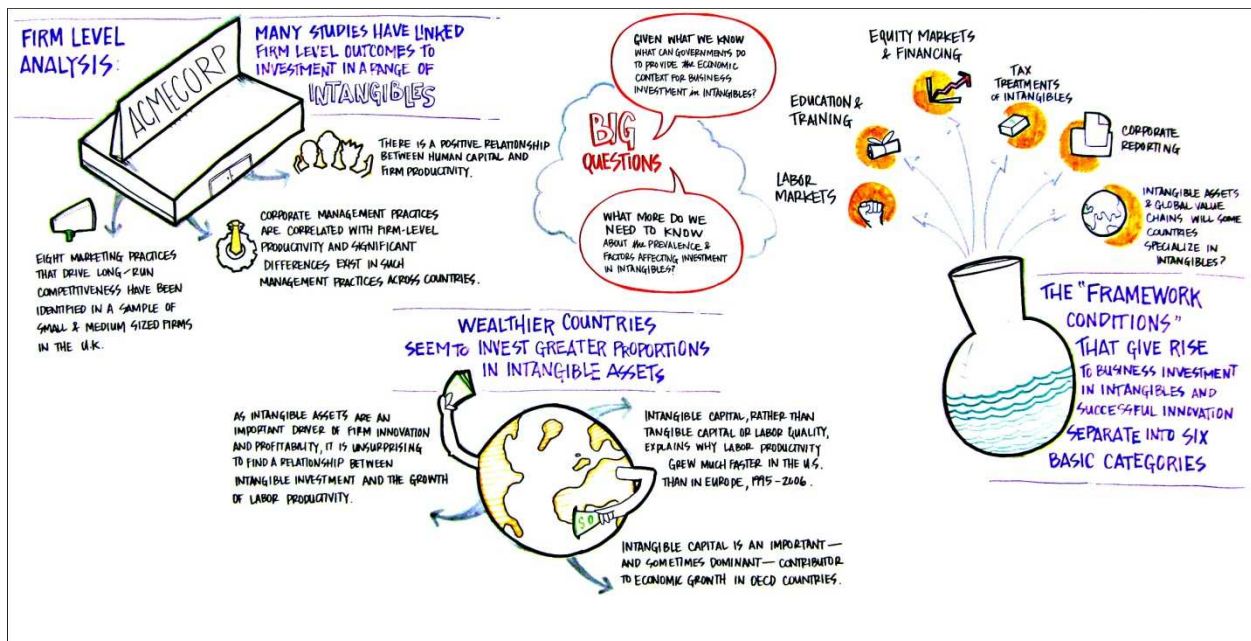 FIRM LEVEL
ANALYSIS:
ACMECORP
MANY STUDIES HAVE LINKED
FIRM LEVEL OUTCOMES TO
INVESTMENT IN A RANGE OF
INTANGIBLES
THERE IS A POSITIVE RELATIONSHIP
BETWEEN HUMAN CAPITAL AND
FIRM PRODUCTIVITY.
CORPORATE MANAGEMENT PRACTICES
ARE CORRELATED WITH FIRM-LEVEL
PRODUCTIVITY AND SIGNIFICANT
DIFFERENCES EXIST IN SUCH
MANAGEMENT PRACTICES ACROSS COUNTRIES.
EIGHT MARKETING PRACTICES
THAT DRIVE LONG-RUN
COMPETITIVENESS HAVE BEEN
IDENTIFIED IN A SAMPLE OF
SMALL & MEDIUM SIZED FIRMS
IN THE U.K.
BIG
QUESTIONS
GIVEN WHAT WE KNOW
WHAT CAN GOVERNMENTS DO
TO PROVIDE the ECONOMIC
CONTEXT FOR BUSINESS
INVESTMENT in INTANGIBLES?
WHAT MORE DO WE
NEED TO KNOW
ABOUT the PREVALENCE &
FACTORS AFFECTING INVESTMENT
IN INTANGIBLES?
WEALTHIER COUNTRIES
SEEM TO INVEST GREATER PROPORTIONS
IN INTANGIBLE ASSETS
AS INTANGIBLE ASSETS ARE AN
IMPORTANT DRIVER OF FIRM INNOVATION
AND PROFITABILITY, IT IS UNSURPRISING
TO FIND A RELATIONSHIP BETWEEN
INTANGIBLE INVESTMENT AND THE GROWTH
OF LABOR PRODUCTIVITY.
INTANGIBLE CAPITAL, RATHER THAN
TANGIBLE CAPITAL OR LABOR QUALITY,
EXPLAINS WHY LABOR PRODUCTIVITY
GREW MUCH FASTER IN THE U.S.
THAN IN EUROPE, 1995-2006.
INTANGIBLE CAPITAL IS AN IMPORTANT—
AND SOMETIMES DOMINANT— CONTRIBUTOR
TO ECONOMIC GROWTH IN OECD COUNTRIES.
LABOR
MARKETS
EDUCATION &
TRAINING
EQUITY MARKETS
& FINANCING
TAX
TREATMENTS
OF INTANGIBLES
CORPORATE
REPORTING
INTANGIBLE ASSETS
& GLOBAL VALUE
CHAINS WILL SOME
COUNTRIES
SPECIALIZE IN
INTANGIBLES?
THE "FRAMEWORK
CONDITIONS"
THAT GIVE RISE
TO BUSINESS INVESTMENT
IN INTANGIBLES AND
SUCCESSFUL INNOVATION
SEPARATE INTO SIX
BASIC CATEGORIES